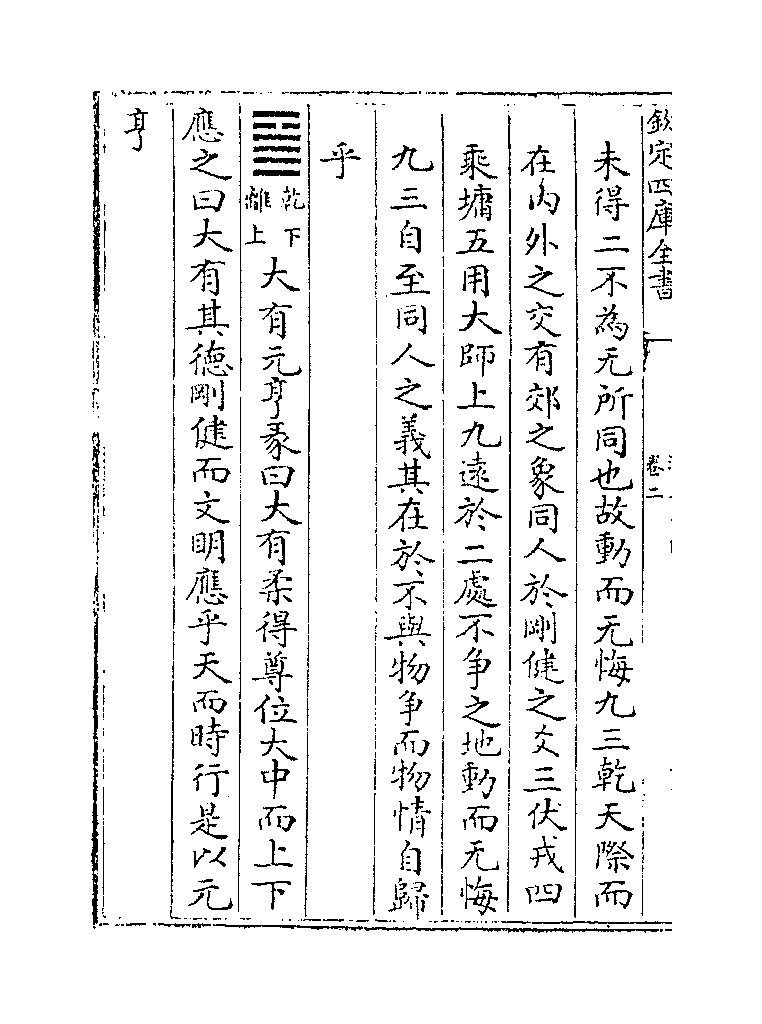 欽定四庫全書
卷二
未得二不為无所同也故動而无悔九三乾天際而
在内外之交有郊之象同人於剛健之爻三伏戎四
乘墉五用大師上九遠於二處不争之地動而无悔
九三自至同人之義其在於不與物争而物情自歸
乎
䷍乾下離上大有元亨彖曰大有柔得尊位大中而上下
應之曰大有其德剛健而文明應乎天而時行是以元
亨